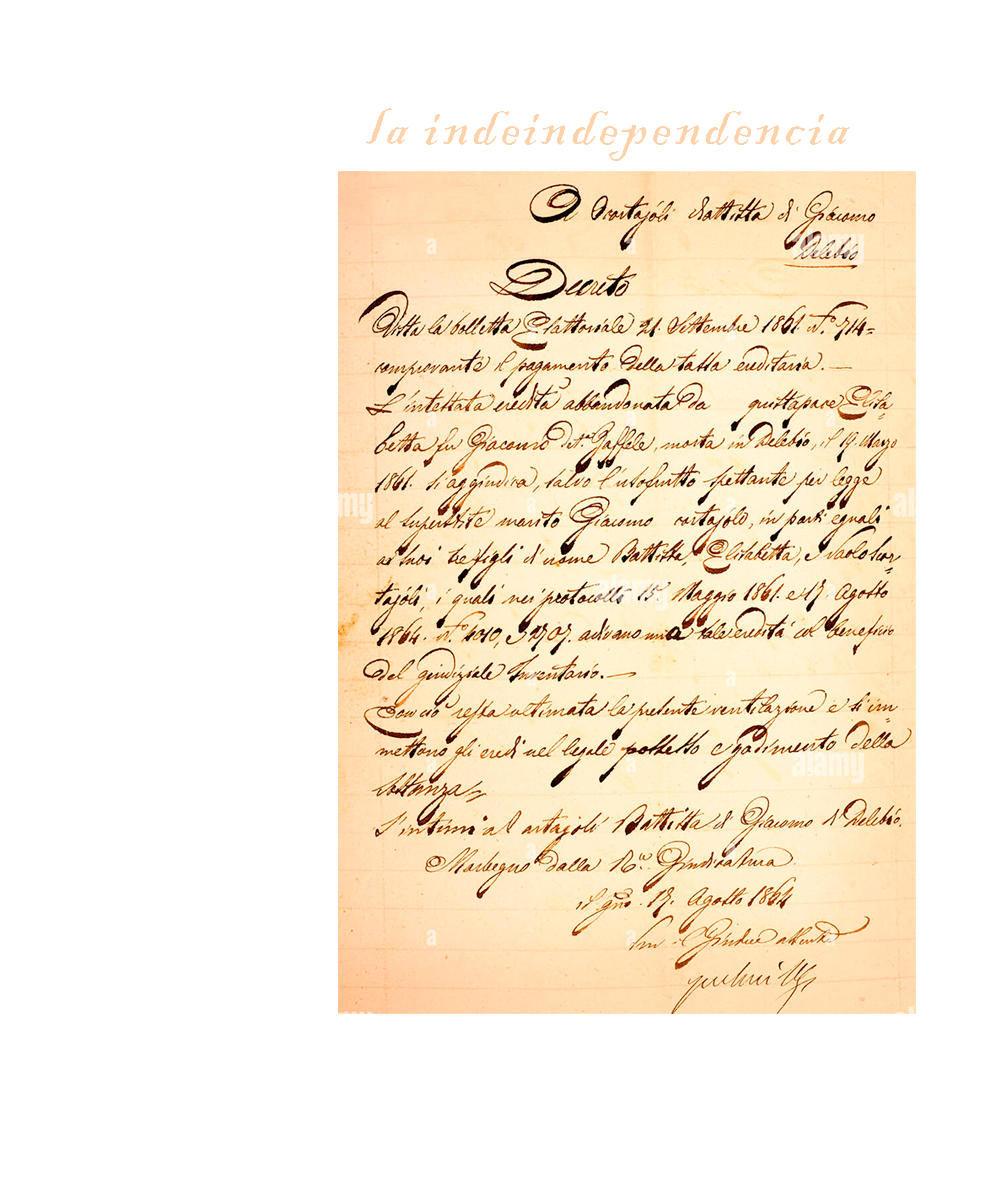 la indeindependencia
A Scortajóli Battista di Giacomo
Delebio
Decreto
Vista la bolletta Esattoriale 21. Settembre 1861. N.º 714=
comprovante il pagamento della tassa ereditaria.—
L'intestata eredità abbandonata da giustapace Elisa=
betta fu Giacomo det.ª , morta in Delebio, il 19. Marzo
1861. s'aggiudica, salvo l'usofrutto spettante per legge
al superstite marito Giacomo cortajólo, in parti eguali
ai suoi tre figli di nome Battista, Elisabetta, e Paolo Scor=
tajóli, i quali nei protocolli 15. Maggio 1861. e 17. Agosto
1864. N.º 2010, e 2707. adivano una tale eredità col beneficio
del giudiziale Inventario.—
Con ciò resta ultimata la presente ventilazione e si im=
mettono gli eredi nel legale possesso e godimento della
sostanza=
S'intimi al ortajoli Battista di Giacomo di Delebio.
Morbegno dalla R.ª Giudicatura
il g.no 17. Agosto 1864
il Giudice
alamy